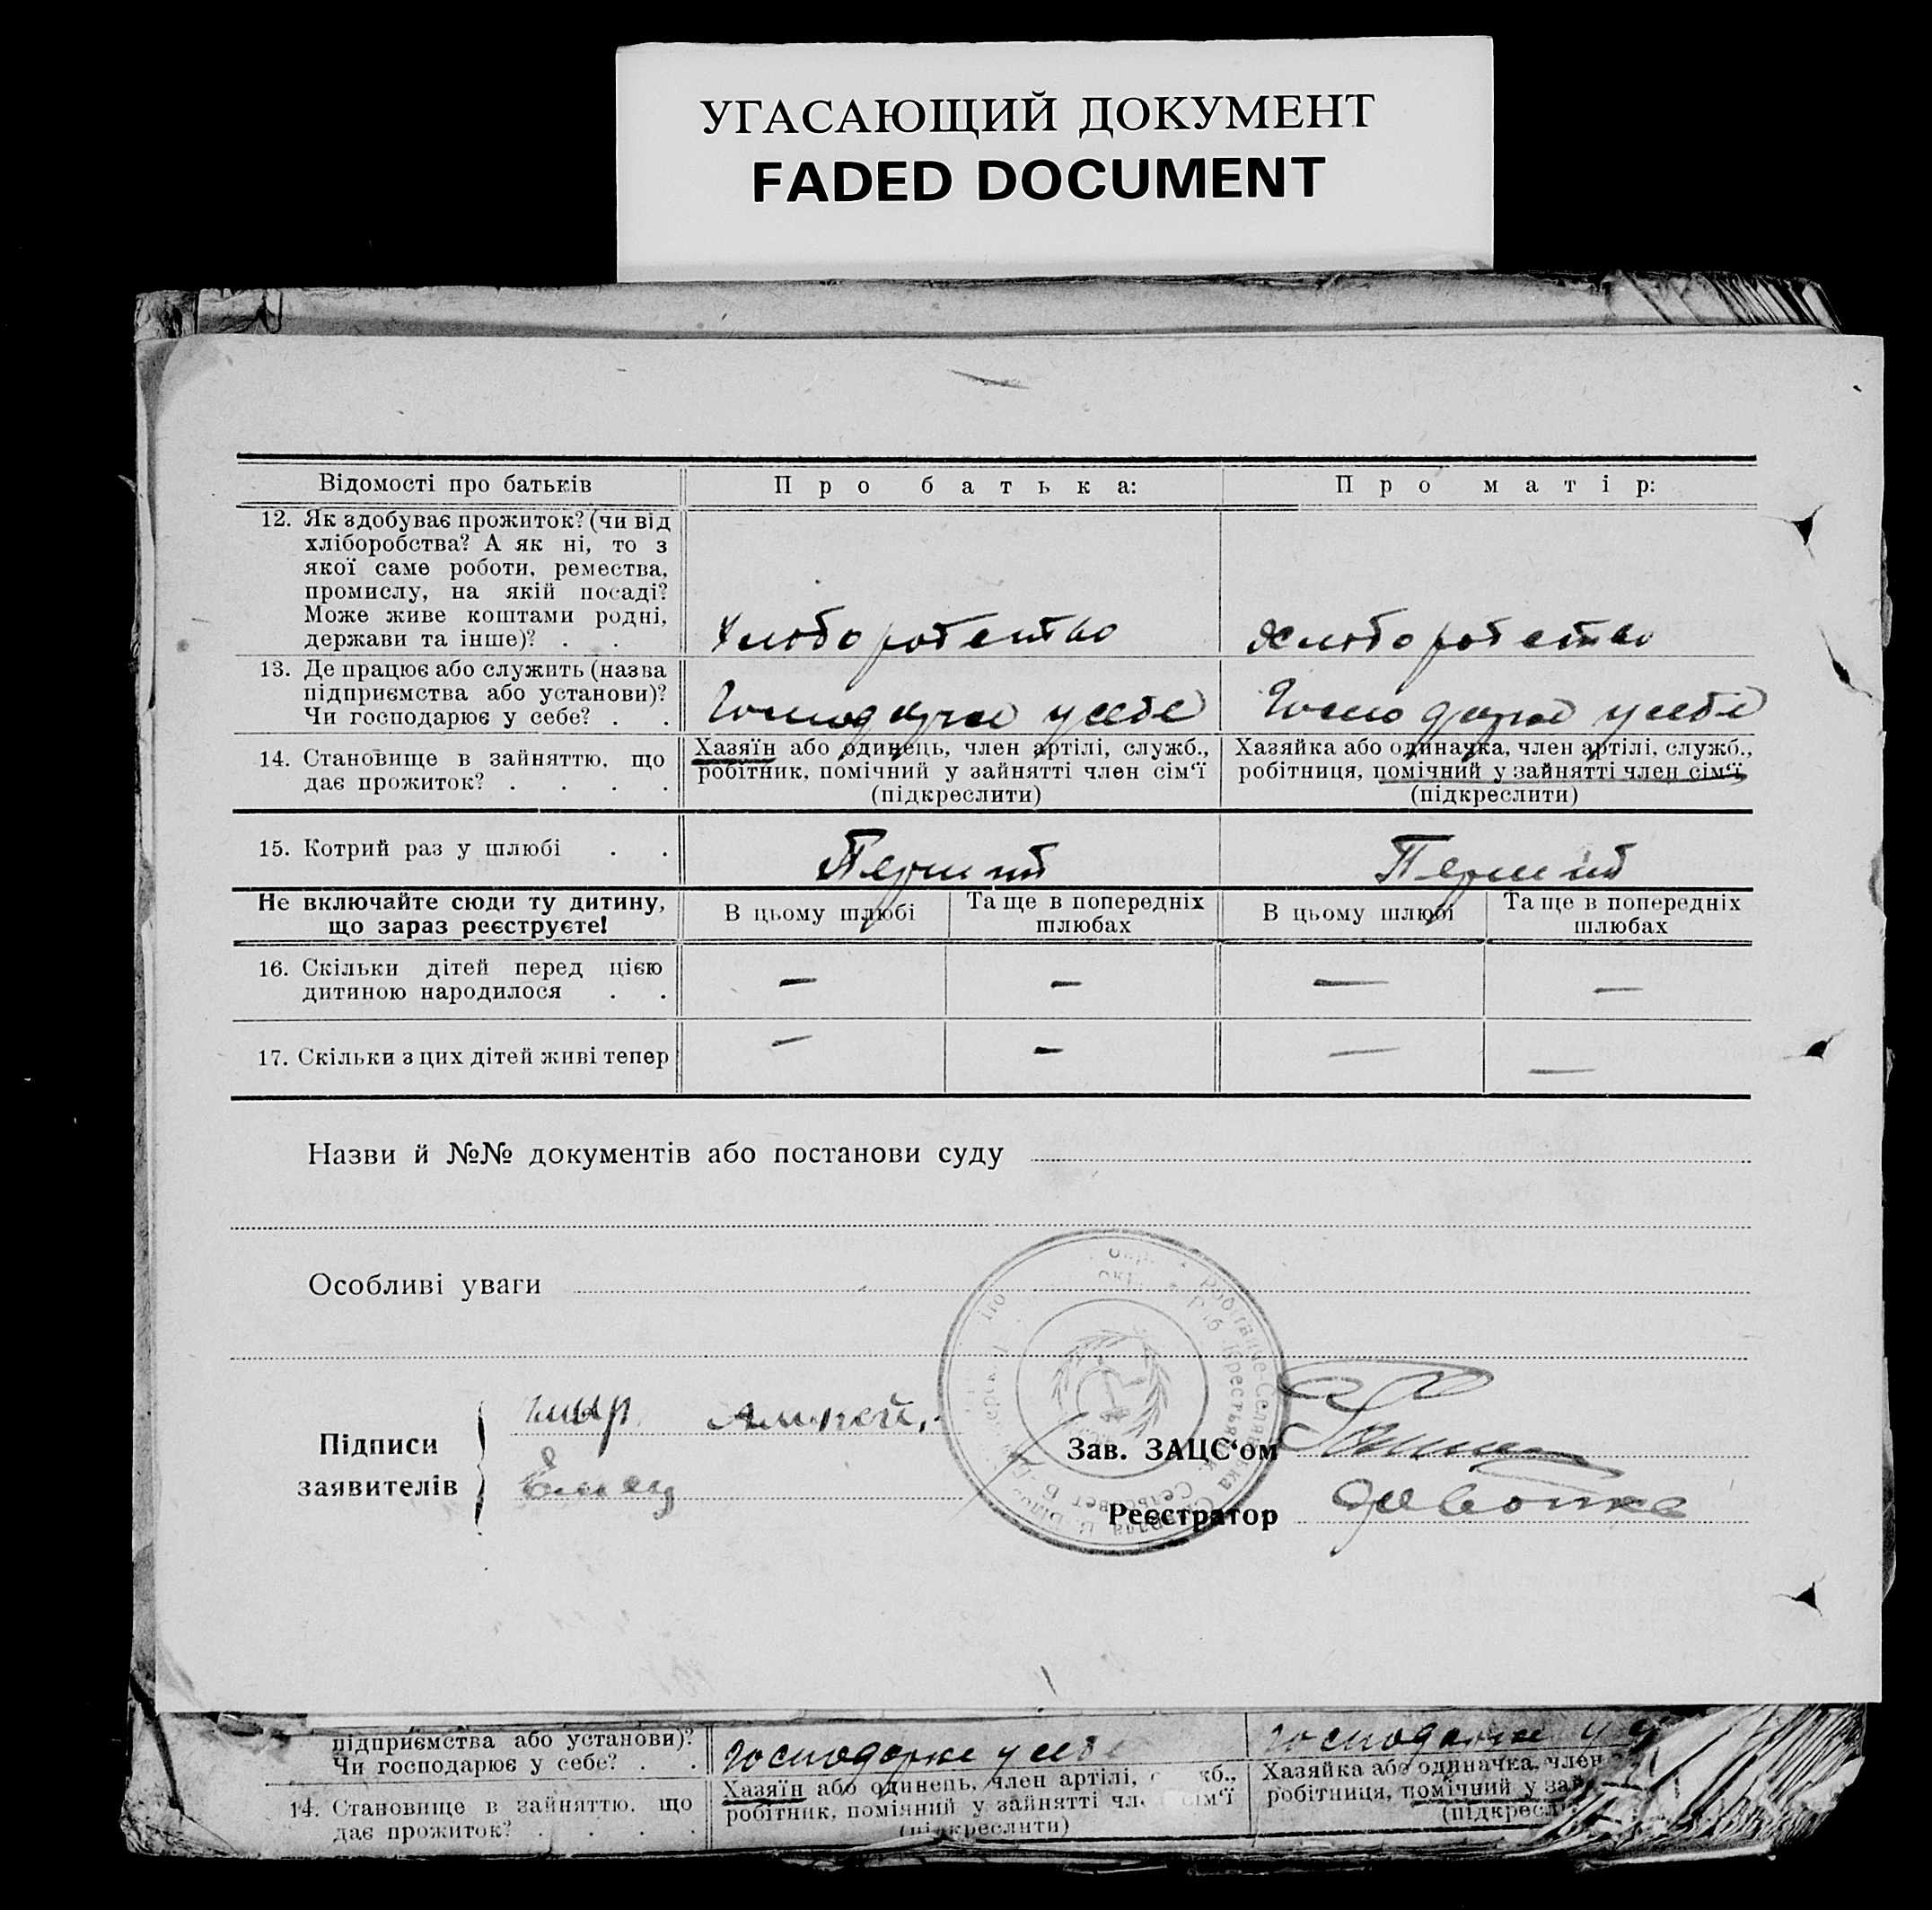 УГАСАЮЩИЙ ДОКУМЕНТ
FADED DOCUMENT
Відомості про батьків
Про батька:
Про матір:
12. Як здобуває прожиток? (чи від
хліборобства? А як ні, то з
якої саме роботи, ремества,
промислу, на якій посаді?
Може живе коштами родні,
держави та інше)? . .
Хліборобство
Хліборобство
13. Де працює або служить (назва
підприємства або установи)?
Чи господарює у себе? . .
Господарює у себе
Господарює у себе
14. Становище в зайняттю, що
дає прожиток? . . . .
Хазяїн або одинець, член артілі, служб.,
робітник, помічний у зайнятті член сім'ї
(підкреслити)
Хазяйка або одиначка, член артілі, служб.,
робітниця, помічний у зайнятті член сім'ї
(підкреслити)
15. Котрий раз у шлюбі . .
Перший
Перший
Не включайте сюди ту дитину,
що зараз реєструєте!
В цьому шлюбі
Та ще в попередніх
шлюбах
В цьому шлюбі
Та ще в попередніх
шлюбах
16. Скільки дітей перед цією
дитиною народилося . .
— — — —
17. Скільки з цих дітей живі тепер
— — — —
Назви й №№ документів або постанови суду
Особливі уваги
Підписи
заявителів
Зав. ЗАЦС'ом
Реєстратор
підприємства або установи)?
Чи господарює у себе? . .
Господарює у себе
Господарює у
14. Становище в зайняттю, що
дає прожиток? . . . .
Хазяїн або одинець, член артілі,
робітник, помічний у зайнятті
(підкреслити)
Хазяйка або одиначка, член
робітниця, помічний у